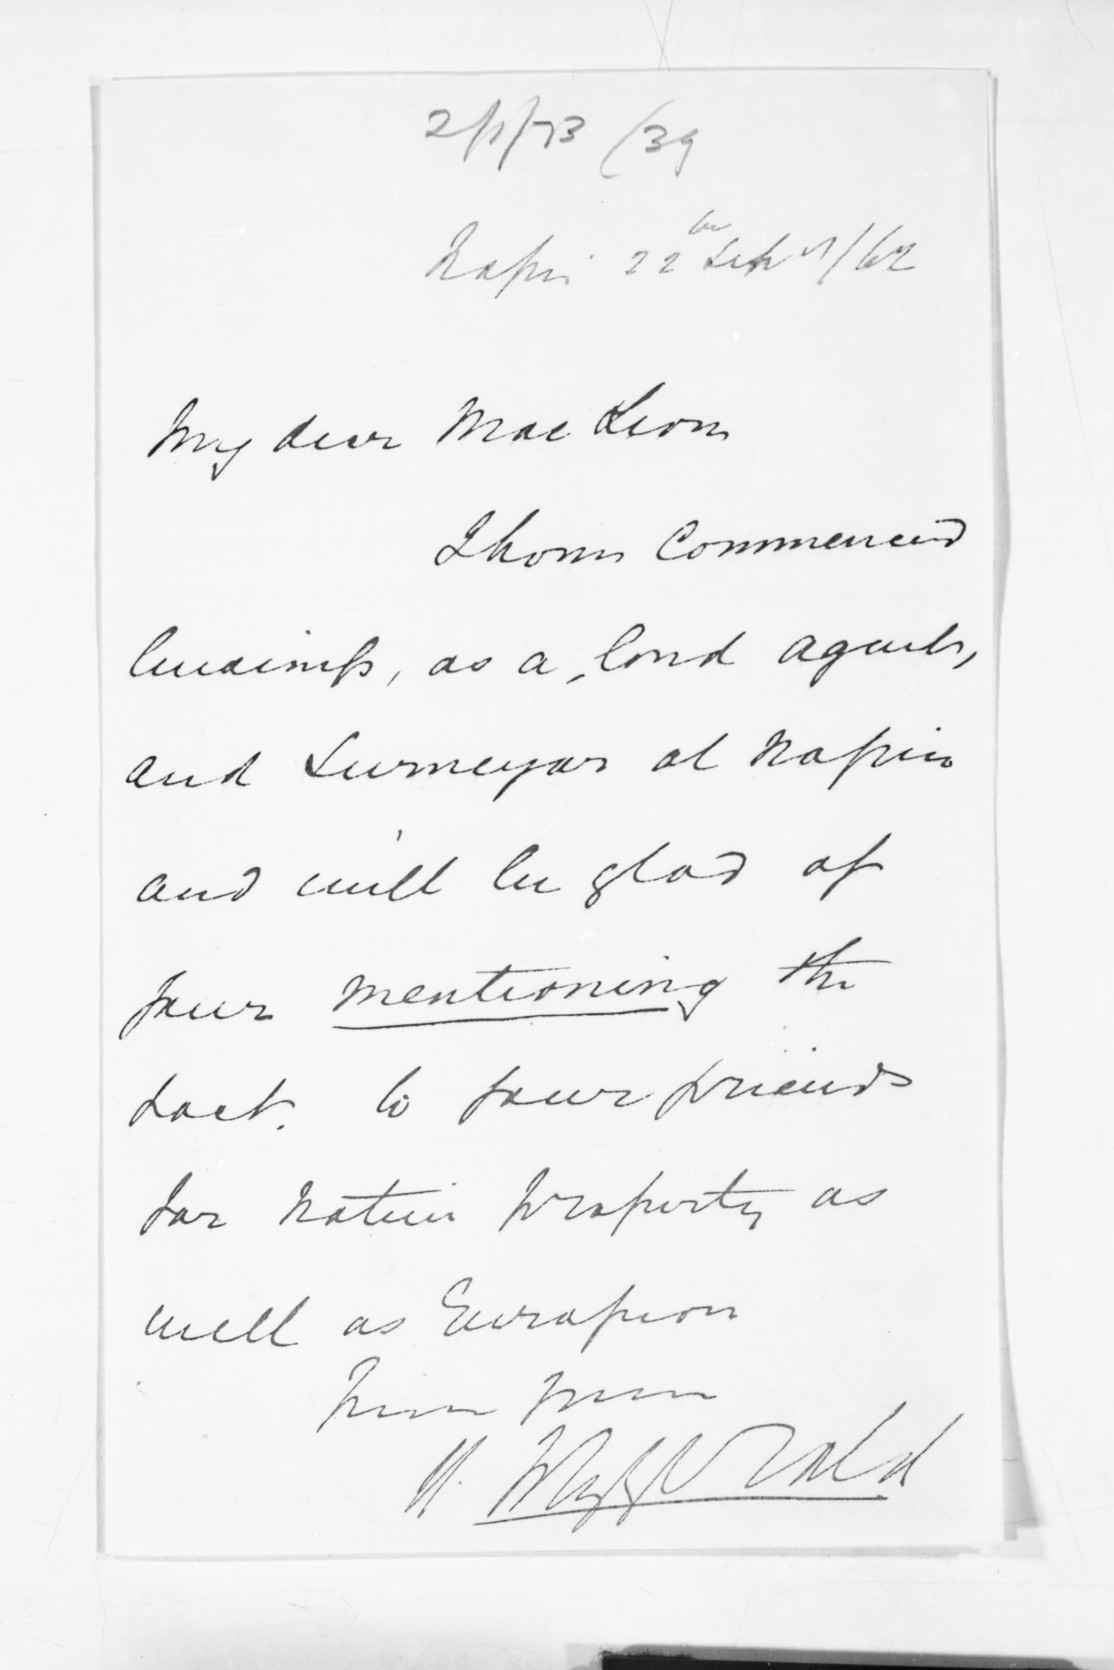 Napier 22nd Sept /62
My dear MacLean
I have Commenced
business, as a land agent,
and Surveyor at Napier
and will be glad of
your mentioning the
fact. to your friends
for Native property as
well as European
FitzGerald